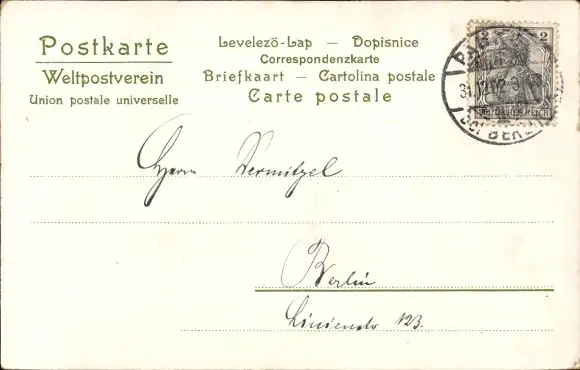 Postkarte
Weltpostverein
Union postale universelle
Levelezö-Lap — Dopisnice
Correspondenzkarte
Briefkaart — Cartolina postale
Carte postale
2 2
DEUTSCHES REICH
Herrn Vermitzel
Berlin
Linienstr 123.